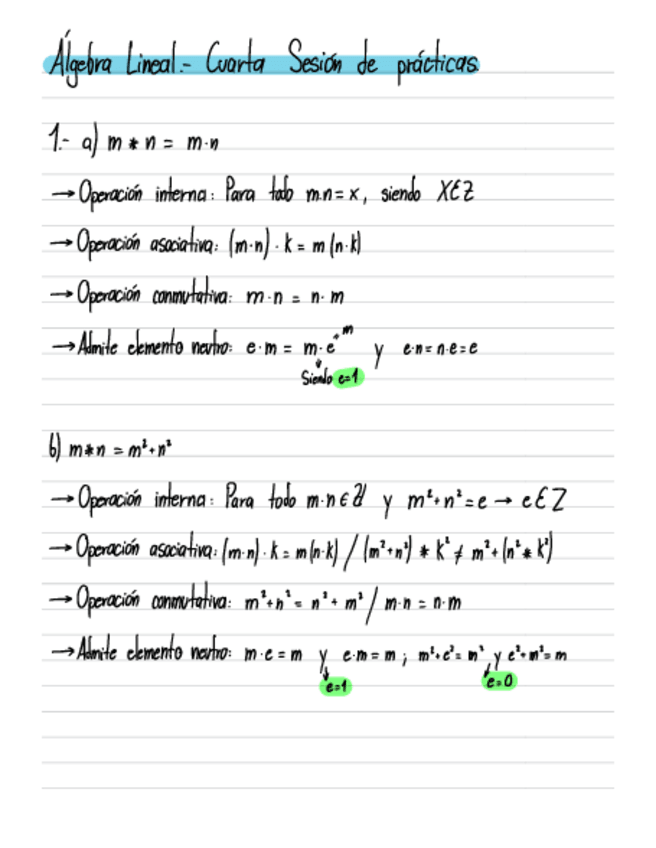 Álgebra Lineal.- Cuarta Sesión de prácticas
1.- a) m * n = m·n
→ Operación interna: Para todo m.n = x, siendo X∈Z
→ Operación asociativa: (m·n) · k = m (n·k)
→ Operación conmutativa: m·n = n·m
→ Admite elemento neutro: e·m = m·e = m y e·n = n·e = e
Siendo e=1
b) m * n = m² + n²
→ Operación interna: Para todo m·n ∈ Z y m² + n² = e → e∈Z
→ Operación asociativa: (m·n) · k = m(n·k) / (m² + n²) * k² ≠ m² + (n² * k²)
→ Operación conmutativa: m² + n² = n² + m² / m·n = n·m
→ Admite elemento neutro: m·e = m y e·m = m ; m² + e² = m² y e² + m² = m
e=1 e=0